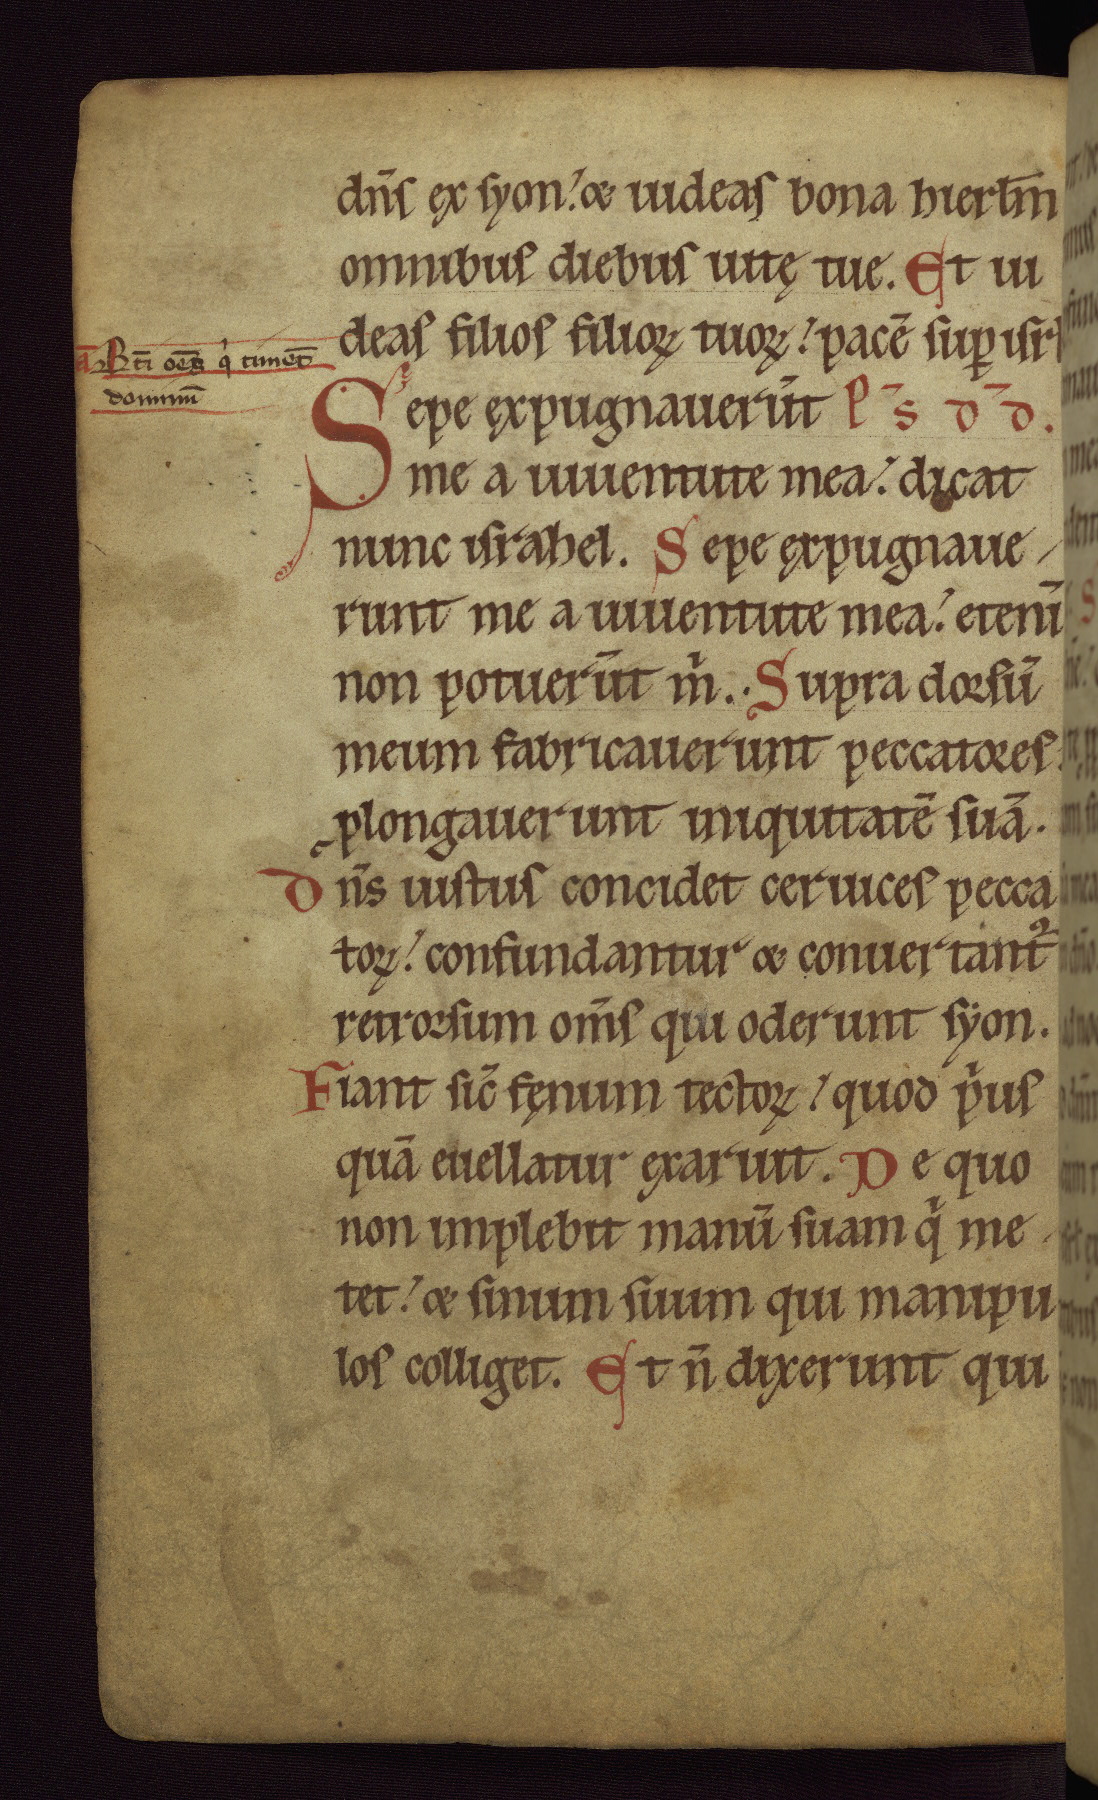 dn̄s ex syon! & uideas bona hierłm̄
omnibus diebus uitę tue. Et ui
deas filios filioꝝ tuoꝝ! pacē suꝑ isrł
ā Bt̄i oēs q̇ timēt
dominū
Sepe expugnauerūt P̄ s̄ d̄ d̄.
me a iuuentute mea! dicat
nunc israhel. Sepe expugnaue
runt me a iuuentute mea! etenī
non potuerūt m̍. Supra dorsū
meum fabricauerunt peccatores
ꝓlongauerunt iniquitatē suā.
dn̄s iustus concidet ceruices pecca
toꝝ! confundantur & conuertant᷑
retrorsum om̄s qui oderunt syon.
Fiant sic̄ fęnum tectoꝝ! quod p̍us
quā euellatur exaruit. De quo
non implebit manū suam q̍ me
tet! & sinum suum qui manipu
los colliget. Et n̄ dixerunt qui